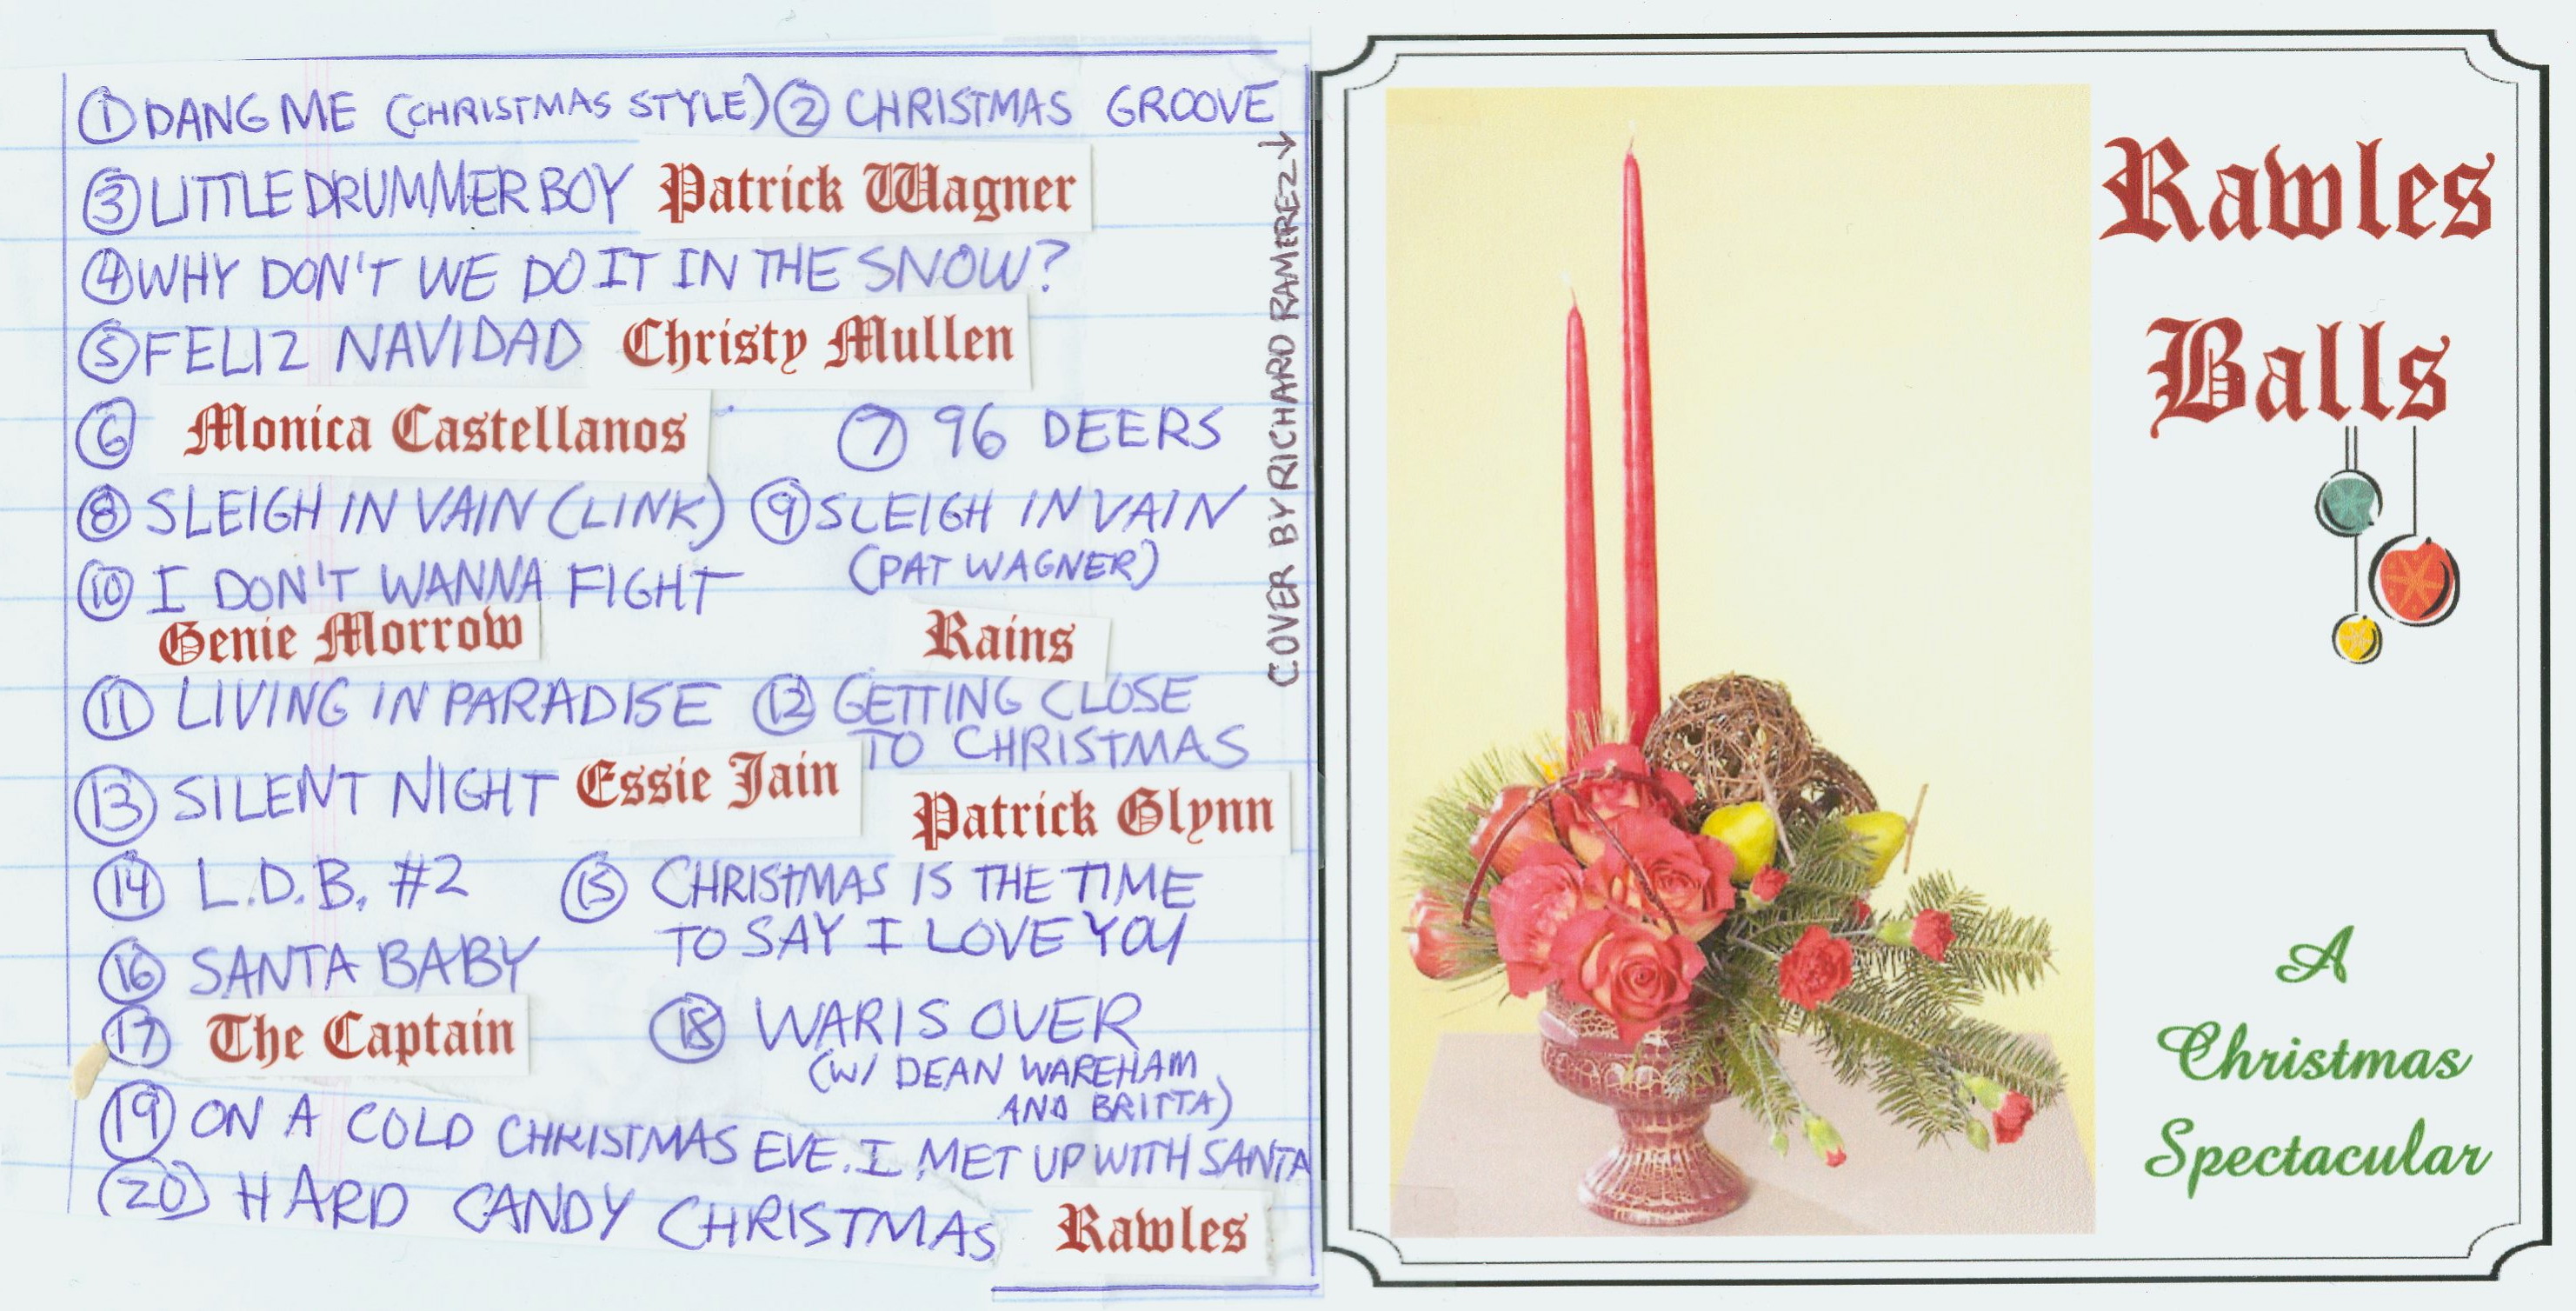 ① DANG ME (CHRISTMAS STYLE) ② CHRISTMAS GROOVE
③ LITTLE DRUMMER BOY Patrick Wagner
④ WHY DON'T WE DO IT IN THE SNOW?
⑤ FELIZ NAVIDAD Christy Mullen
⑥ Monica Castellanos ⑦ 96 DEERS
⑧ SLEIGH IN VAIN (LINK) ⑨ SLEIGH IN VAIN
(PAT WAGNER)
⑩ I DON'T WANNA FIGHT
Genie Morrow Rains
⑪ LIVING IN PARADISE ⑫ GETTING CLOSE
TO CHRISTMAS
⑬ SILENT NIGHT Essie Jain Patrick Glynn
⑭ L.D.B. #2 ⑮ CHRISTMAS IS THE TIME
TO SAY I LOVE YOU
⑯ SANTA BABY
⑰ The Captain ⑱ WAR IS OVER
(W/ DEAN WAREHAM
AND BRITTA)
⑲ ON A COLD CHRISTMAS EVE. I MET UP WITH SANTA
⑳ HARD CANDY CHRISTMAS Rawles
COVER BY RICHARD RAMIREZ ↓
Rawles
Balls
A
Christmas
Spectacular